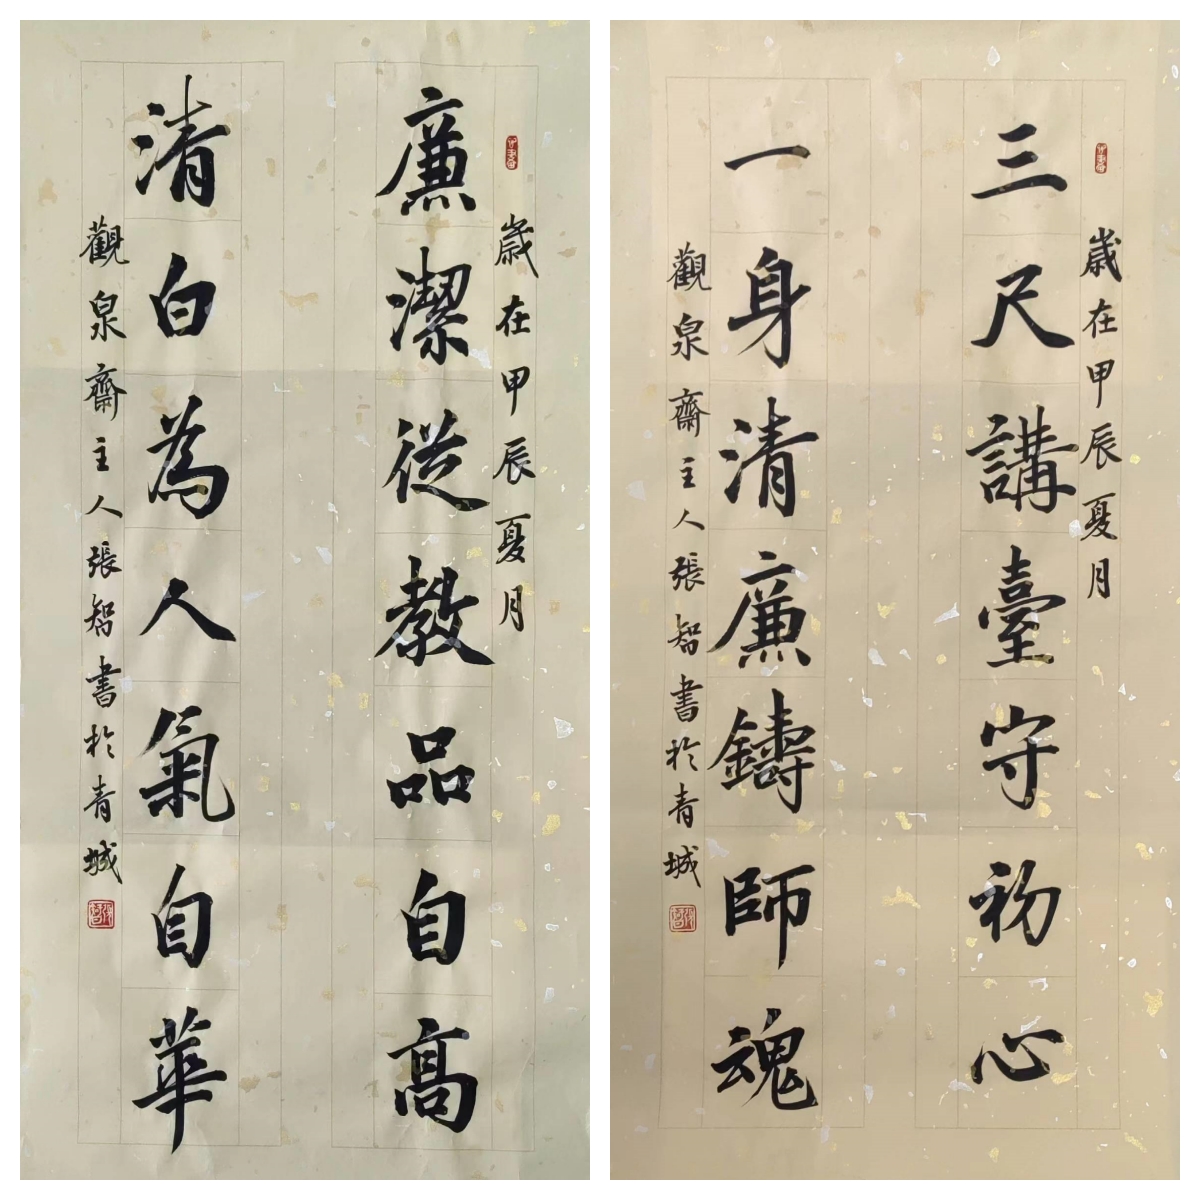 歲在甲辰夏月
廉潔從教品自高
清白為人氣自華
觀泉齋主人張智書於青城
歲在甲辰夏月
三尺講臺守初心
一身清廉鑄師魂
觀泉齋主人張智書於青城